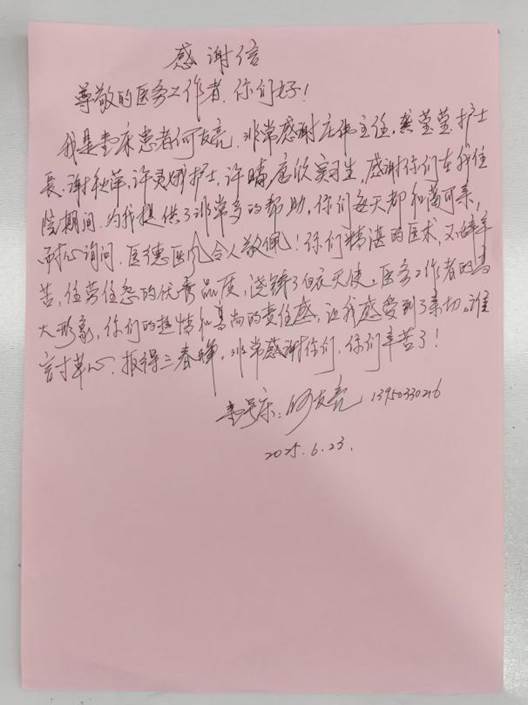 感谢信
尊敬的医务工作者，你们好！
我是 床患者何友亮，非常感谢庄 主任，龚莹莹护士
长，谢秋萍，许 护士，许晴， 欣实习生，感谢你们在我住
院期间，为我提供了非常多的帮助，你们每天都和蔼可亲，
耐心询问，医德医风令人敬佩！你们精湛的医术，又 辛
苦，任劳任怨的优秀品质，浇铸了白衣天使，医务工作者的高
大形象，你们的热情和高尚的责任感，让我感受到了亲切。谁
言寸草心，报得三春晖，非常感谢你们，你们辛苦了！
床：何友亮 13950330216
2025.6.23.